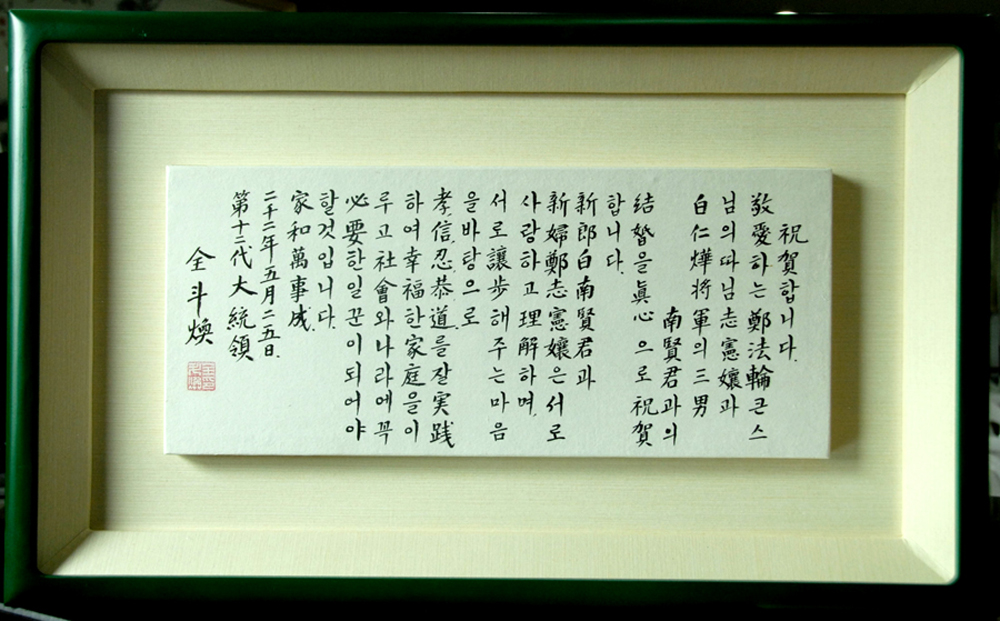 祝賀합니다.
敬愛하는鄭法輪큰스
님의따님志憲孃과
白仁燁将軍의三男
南賢君과의
結婚을眞心으로祝賀
합니다.
新郎白南賢君과
新婦鄭志憲孃은서로
사랑하고理解하며,
서로讓步해주는마음
을바탕으로
孝,信,忍,恭,道,를잘実践
하여幸福한家庭을이
루고社會와나라에꼭
必要한일꾼이되어야
할것입니다.
家和萬事成.
二千二年五月二五日.
第十二代大統領
全斗煥